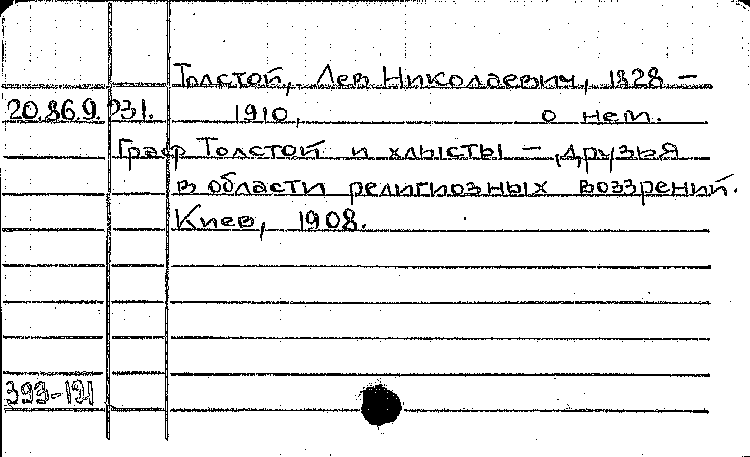 Толстой, Лев Николаевич, 1828 –
20.86.9.231. 1910, о нем.
Граф Толстой и хлысты – друзья
в области религиозных воззрений.
Киев, 1908.
393-191